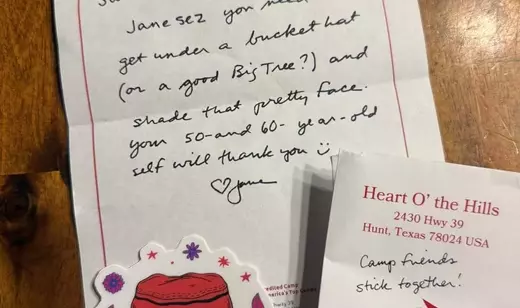 Jane sez you
get under a bucket hat
(or a good Big Tree?) and
shade that pretty face.
your 50-and 60- year-old
self will thank you
Jane
Heart O' the Hills
2430 Hwy 39
Hunt, Texas 78024 USA
Camp friends
stick together!
edited Camp
merica's Top
hwy 39